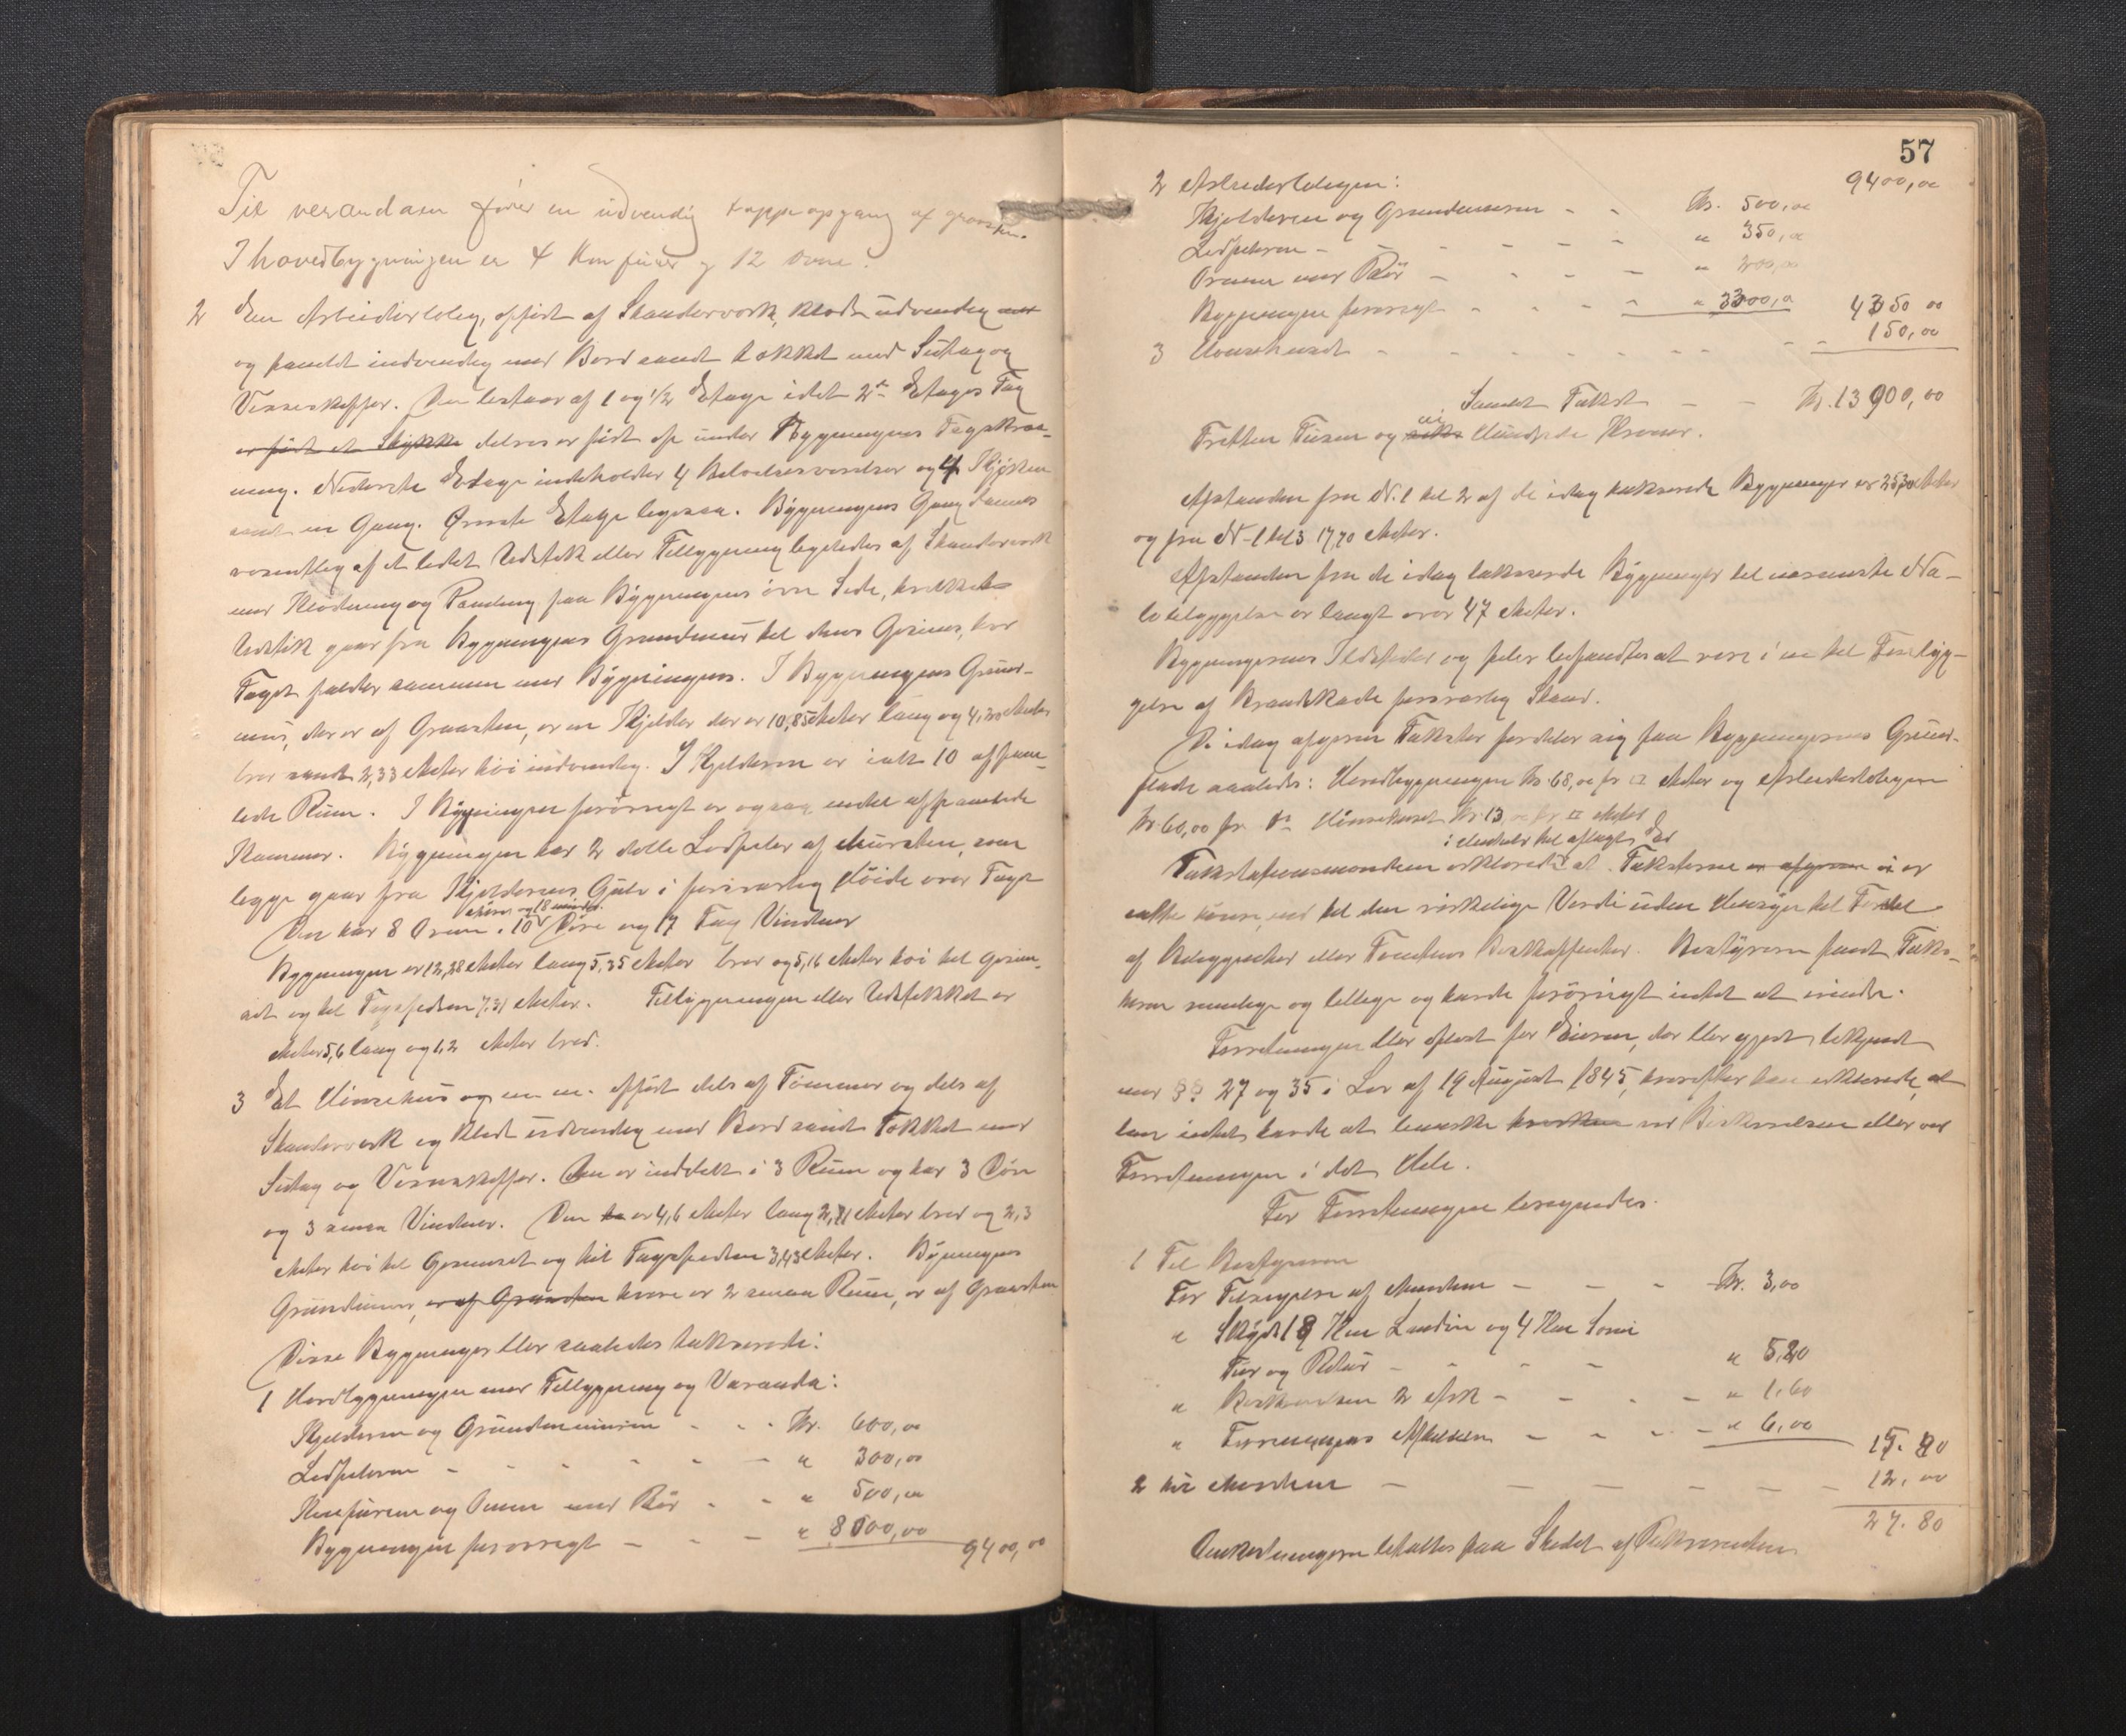 Til verandaen fører en udvendig trappeopgang af graasten.
I hovedbygningen er 4 Komfurer og 12 Ovne.
2 En Arbeiderbolig, opført af Standerverk, klædt udvendig med
og panelt indvendig med Bord samt tækket med Sutag og
Vesseskiffer. Den bestaar af 1 og 1/2 Etage idet 2den Etages Tag
er ført et Stykke delvis er ført op under Bygningens Tagskraa-
ning. Nederste Etage indeholder 4 Beboelsesværelser og 4 Kjøkken
samt en Gang. Øverste Etage ligesaa. Bygningens Gang dannes
væsentlig af et lidet Udstik eller Tilbygning ligeledes af Standerverk
med Klædning og Paneling paa Bygningens øvre Side, hvilket
Udstik gaar fra Bygningens Grundmur til dens Gesims, hvor
Taget falder sammen med Bygningens. I Bygningens Grund-
mur, der er af Graasten, er en Kjelder der er 10,85 Meter lang og 4,20 Meter
bred samt 2,33 Meter høi indvendig. I Kjelderen er ialt 10 afpane-
lede Rum. I Bygningen forøvrigt er ogsaa endel afpanelede
Kammer. Bygningen har 2 dobbelte Ledpiber af Mursten, som
begge gaar fra Kjelderens Gulv i forsvarlig Høide over Taget
Den har 8 Ovne, 10 større og 18 mindre Døre og 17 Fag Vinduer
Bygningen er 12,28 Meter lang 5,35 Meter bred og 5,16 Meter høi til Gesim-
set og til Tagspidsen 7,31 Meter. Tilbygningen eller Udstikket er
Meter 5,6 lang og 1,2 Meter bred.
3 Et Hønsehus og en m. opført dels af Tømmer og dels af
Standerverk og klædt udvendig med Bord samt Tækket med
Sutag og Vosseskiffer. Den er inddelt i 3 Rum og har 3 Døre
og 3 smaa Vinduer. Den har er 4,6 Meter lang 2,71 Meter bred og 2,3
Meter høi til Gesimset og til Tagspidsen 3,43 Meter. Bygningens
Grundmur, er af Graasten hvori er 2 smaa Rum, er af Graasten
Disse Bygninger blev saaledes takserede:
1 Hovedbygningen med Tilbygning og Veranda:
Kjelderen og Grundmuren - - - Kr. 600,00
Ledpiberne - - - - - - " 300,00
Komfurene og Ovnene med Rør - - " 500,00
Bygningen forøvrigt - - - " 8000,00 9400,00
57
9400,00
2 Arbeiderboligen:
Kjelderen og Grundmuren - - Kr. 500,00
Ledpiberne - - - - - - " 350,00
Ovnene med Rør - - - - " 200,00
Bygningen forøvrigt - - - - " 3300,00 4350 00
3 Hønsehuset - - - - - - - - - 150,00
Samlet Takst - - Kr. 13900,00
Tretten Tusen og seks ni Hundrede Kroner.
Afstanden fra No. 1 til 2 af de idag takserede Bygninger er 25,30 Meter
og fra No 1 til 3 17,70 Meter.
Afstanden fra de idag takserede Bygninger til nærmeste Na-
bobebyggelse er langt over 47 Meter.
Bygningernes Ildsteder og piber befandtes at være i en til Forebyg-
gelse af Brandskade forsvarlig Stand.
De idag afgivne Takster fordeler sig paa Bygningernes Grund-
flade saaledes: Hovedbygningen Kr. 68,00 pr □ Meter og Arbeiderboligen
Kr. 60,00 pr do Hønsehuset Kr. 13,00 pr □ Meter
i Henhold til aflagt Ed
Takstationsmændene erklærede at Taksterne er afgivne i er
ansatte til den virkelige Værdi uden Hensyn til Fordel
af Beliggenhed eller Tomtens Beskaffenhed. Bestyreren fandt Takst-
terne rimelige og billige og havde forøvrigt intet at erindre.
Forretningen blev oplæst for Eieren, der blev gjort bekjendt
med §§ 27 og 35 i Lov af 19 August 1845, hvorefter han erklærede, at
han intet havde at bemærke hverken ved Beskrivelsen eller ved
Forretningen i det Hele.
For Forretningen beregnedes.
1 Til Bestyreren
For Tilsigelse af Mændene - - - Kr. 3,00
" Skyds 18 Km Landvei og 4 Km Søvei
Tur og Retur - - - - " 5,20
" Beskrivelsen 2 Ark - - - - " 1,60
" Forretningens Afholdelse - - - - " 6,00 15.80
2 til Mændene - - - - - - - 12.00
27.80
Omkostningerne betaltes paa Stedet af Rekvirenten